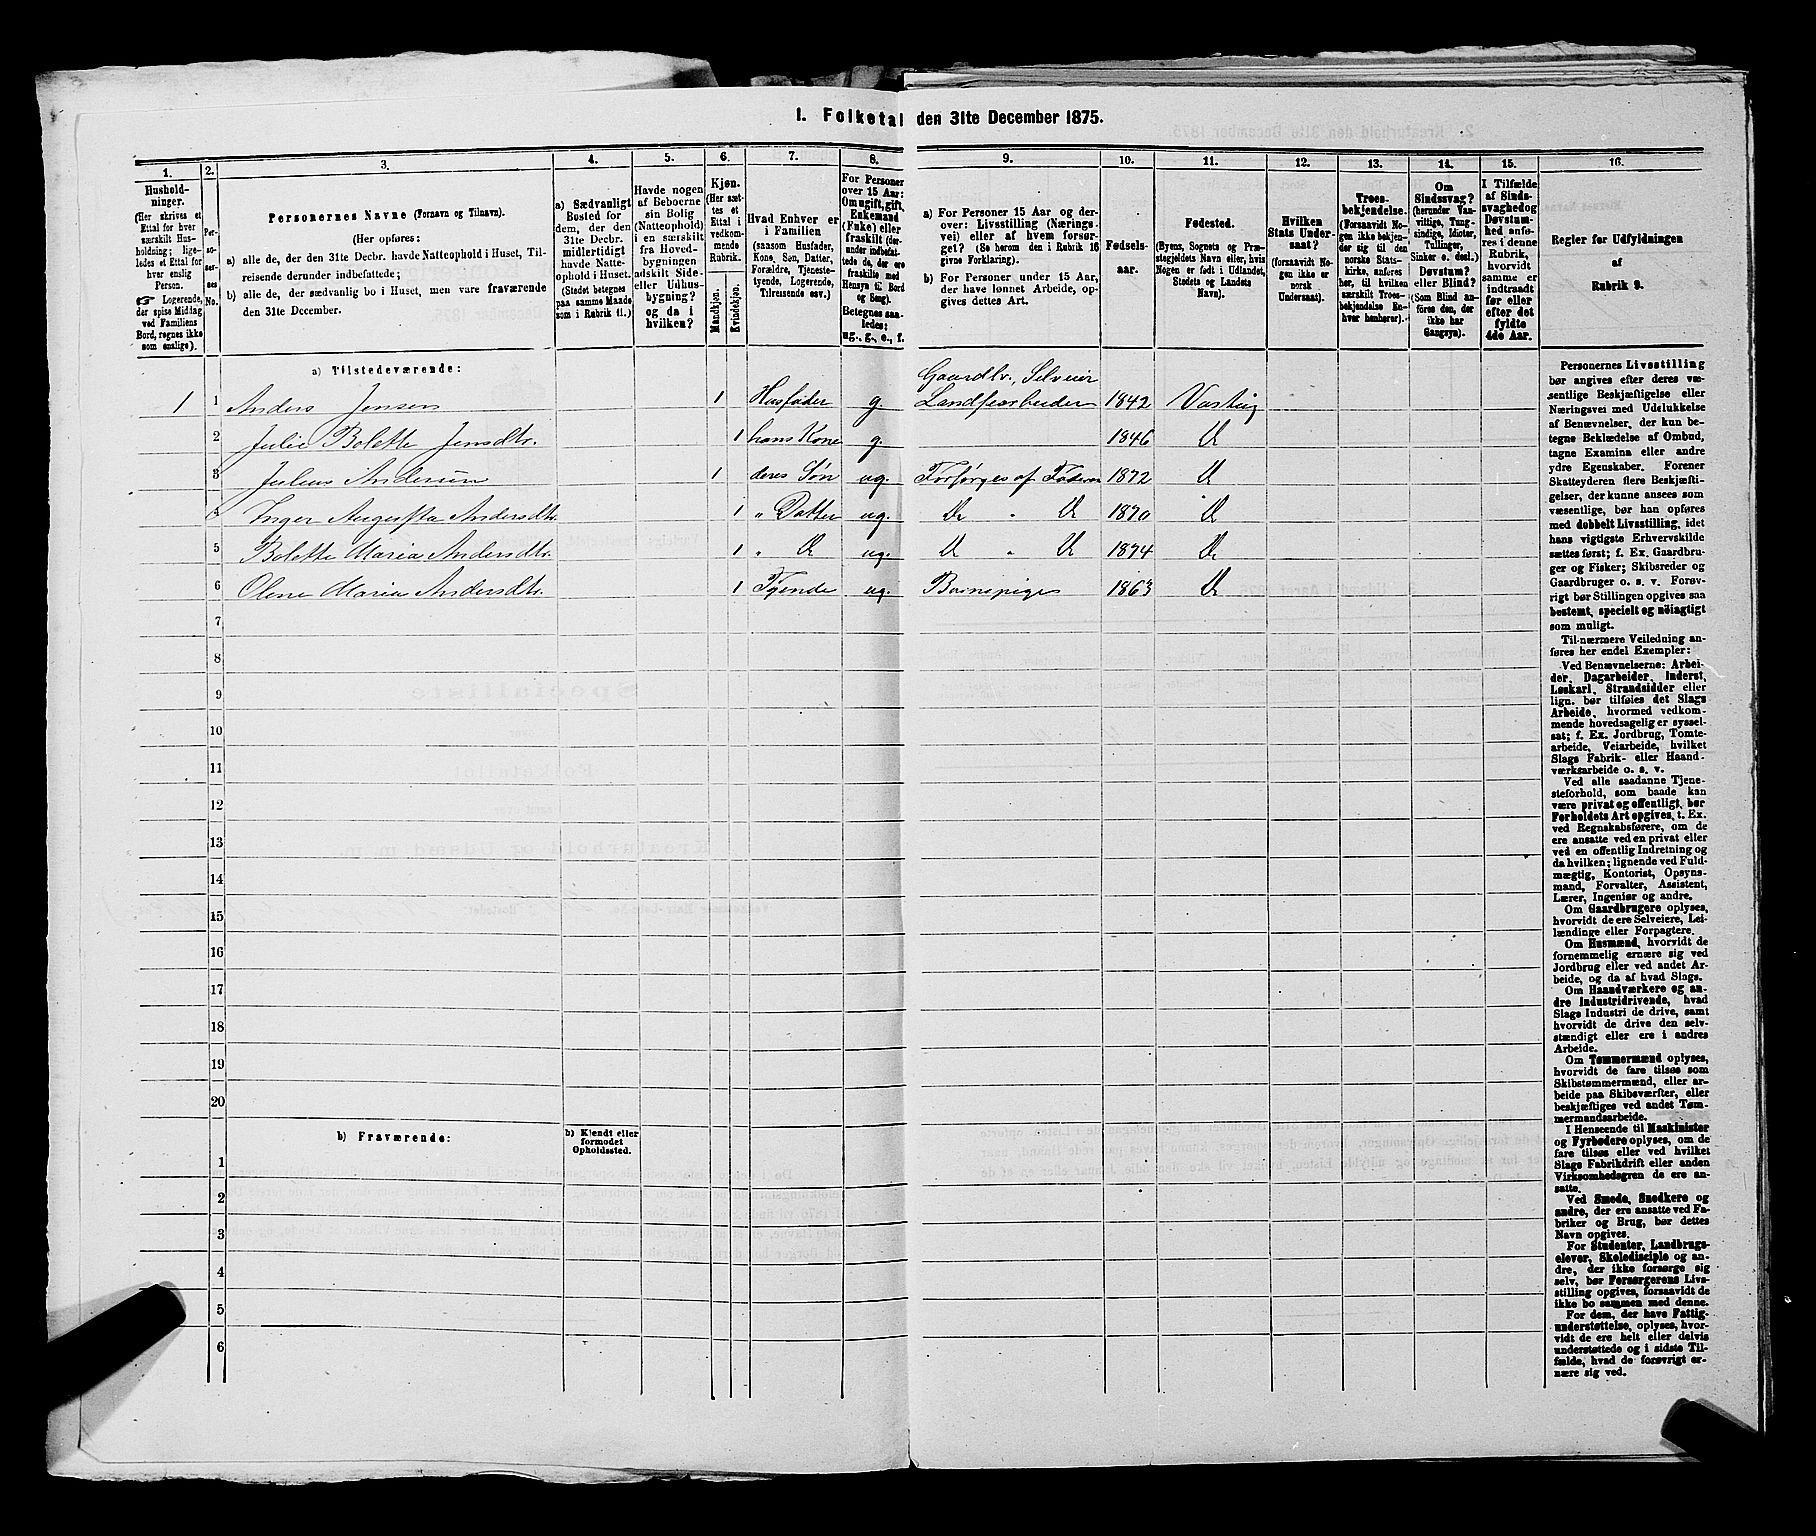 1. Folketal den 31te December 1875.
1.
2.
3.
4.
5.
6.
7.
8.
9.
10.
11.
12.
13.
14.
15.
16.
Hushold-
ninger.
(Her skrives et
Ettal for hver
særskilt Hus-
holdning; lige-
ledes et Ettal for
hver enslig
Person.
Logerende,
der spise Middag
ved Familiens
Bord, regnes ikke
som enslige).
Per-
so-
ner-
nes
No.
Personernes Navne (Fornavn og Tilnavn).
(Her opføres:
a) alle de, der den 31te Decbr. havde Natteophold i Huset, Til-
reisende derunder indbefattede;
b) alle de, der sædvanlig bo i Huset, men vare fraværende
den 31te December.
a) Sædvanligt
Bosted for
dem, der den
31te Decbr.
midlertidigt
havde Natte-
ophold i Huset.
(Stedet betegnes
paa samme Maade
som i Rubrik 11.)
Havde nogen
af Beboerne
sin Bolig
(Natteophold)
i en særskilt
fra Hoved-
bygningen
adskilt Side-
eller Udhus-
bygning?
og da i
hvilken?
Kjøn.
(Her sæt-
tes et
Ettal i
vedkom-
mende
Rubrik.
Mandkjøn.
Kvindekjøn.
Hvad Enhver er
i Familien
(saasom Husfader,
Kone, Søn, Datter,
Forældre, Tjeneste-
tyende, Logerende,
Tilreisende osv.)
For Personer
over 15 Aar:
Om ugift, gift,
Enkemand
(Enke) eller
fraskilt (der-
under indbefat-
tede de, der ere
fraskilte med
Hensyn til Bord
og Seng).
Betegnes saa-
ledes:
ug., g., e., f.
a) For Personer 15 Aar og der-
over: Livsstilling (Nærings-
vei) eller af hvem forsør-
get? (Se herom den i Rubrik 16
givne Forklaring).
b) For Personer under 15 Aar,
der have lønnet Arbeide, op-
gives dettes Art.
Fødsels-
aar.
Fødested.
(Byens, Sognets og Præ-
stegjeldets Navn eller, hvis
Nogen er født i Udlandet,
Stedets og Landets
Navn).
Hvilken
Stats Under-
saat?
(forsaavidt No-
gen ikke er
norsk
Undersaat).
Troes-
bekjendelse.
(Forsaavidt No-
gen ikke bekjen-
der sig til den
norske Stats-
kirke, anføres
her, til hvilken
særskilt Troes-
bekjendelse En-
hver henhører).
Om
Sindssvag?
(herunder Van-
vittige, Tung-
sindige, Idioter,
Tullinger,
Sinker o. desl.)
Døvstum?
eller Blind?
(Som Blind an-
føres den, der
ikke har
Gangsyn).
I Tilfælde
af Sinds-
svaghed og
Døvstum-
hed anfø-
res i denne
Rubrik,
hvorvidt
samme er
indtraadt
før eller
efter det
fyldte
4de Aar.
Regler for Udfyldningen
af
Rubrik 9.
a) Tilstedeværende:
1 1 Anders Jensen 1 Husfader g. Gaardbr., Selveier
Landfearbeider 1842
2 Julie Bolette Jensdtr. 1 hans Kone g. 1846 D
3 Julius Andersen 1 deres Søn ug. Forsørges af Faderen 1872 D
4 Inger Augusta Andersdtr. 1 „ Datter ug. D „ D 1870 D
5 Bolette Maria Andersdtr. 1 „ D ug. D „ D 1874 D
6 Olene Maria Andersdtr. 1 Tyende ug. Barnepige 1863 D
7
8
9
10
11
12
13
14
15
16
17
18
19
20
b) Fraværende:
b) Kjendt eller
formodet
Opholdssted.
1
2
3
4
5
6
Personernes Livsstilling
bør angives efter deres væ-
sentlige Beskjæftigelse eller
Næringsvei med Udelukkelse
af Benævnelser, der kun be-
tegne Beklædelse af Ombud,
tagne Examina eller andre
ydre Egenskaber. Forener
Skatteyderen flere Beskjæfti-
gelser, der kunne ansees som
væsentlige, bør han opføres
med dobbelt Livsstilling, idet
hans vigtigste Erhvervskilde
sættes først; f. Ex. Gaardbru-
ger og Fisker; Skibsreder og
Gaardbruger o. s. v. Forøv-
rigt bør Stillingen opgives saa
bestemt, specielt og nöiagtigt
som muligt.
Til nærmere Veiledning an-
føres her endel Exempler:
Ved Benævnelserne: Arbei-
der, Dagarbeider, Inderst,
Løskarl, Strandsidder eller
lign. bør tilføies det Slags
Arbeide, hvormed vedkom-
mende hovedsagelig er syssel-
sat; f. Ex. Jordbrug, Tomte-
arbeide, Veiarbeide, hvilket
Slags Fabrik- eller Haand-
værksarbeide o. s. v.
Ved alle saadanne Tjene-
steforhold, som baade kan
være privat og offentligt, bør
Forholdets Art opgives, t. Ex.
ved Regnskabsførere, om de
ere ansatte ved en privat eller
ved en offentlig Indretning og
da hvilken; lignende ved Fuld-
mægtig, Kontorist, Opsyns-
mand, Forvalter, Assistent,
Lærer, Ingeniør og andre.
Om Gaardbrugere oplyses,
hvorvidt de ere Selveiere, Lei-
lændinge eller Forpagtere.
Om Husmænd, hvorvidt de
fornemmelig ernære sig ved
Jordbrug eller ved andet Ar-
beide, og da af hvad Slags.
Om Haandværkere og an-
dre Industridrivende, hvad
Slags Industri de drive, samt
hvorvidt de drive den selv-
stændigt eller ere i andres
Arbeide.
Om Tømmermænd oplyses,
hvorvidt de fare tilsøs som
Skibstømmermænd, eller ar-
beide paa Skibsværfter, eller
beskjæftiges ved andet Tøm-
mermandsarbeide.
I Henseende til Maskinister
og Fyrbødere oplyses, om de
fare tilsøs eller ved hvilket
Slags Fabrikdrift eller anden
Virksomhedsgren de ere an-
satte.
Ved Smede, Snedkere og
andre, der ere ansatte ved Fa-
briker og Brug, bør dettes
Navn opgives.
For Studenter, Landbrugs-
elever, Skoledisciple og an-
dre, der ikke forsørge sig
selv, bør Forsørgerens Livs-
stilling opgives, forsaavidt de
ikke bo sammen med denne.
For dem, der have Fattig-
understøttelse, oplyses, hvor-
vidt de ere helt eller delvis
understøttede og i sidste Til-
fælde, hvad de forøvrigt er-
nære sig ved.